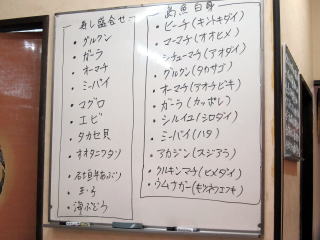 寿し盛合せ
・グルクン
・ガーラ
・オーマチ
・ミーバイ
・マグロ
・エビ
・タカセ貝
・オオタニワタリ
・石垣牛あぶり
・玉子
・海ぶどう
島魚白身
・ビーチ(キントキダイ)
・マーマチ(オオヒメ)
・シチューマチ(アオダイ)
・グルクン(タカサゴ)
・オーマチ(アオチビキ)
・ガーラ(カッポレ)
・シルイユ(シロダイ)
・ミーバイ(ハタ)
・アカジン(スジアラ)
・クルキンマチ(ヒメダイ)
・ウムナガー(キツネフエフキ)